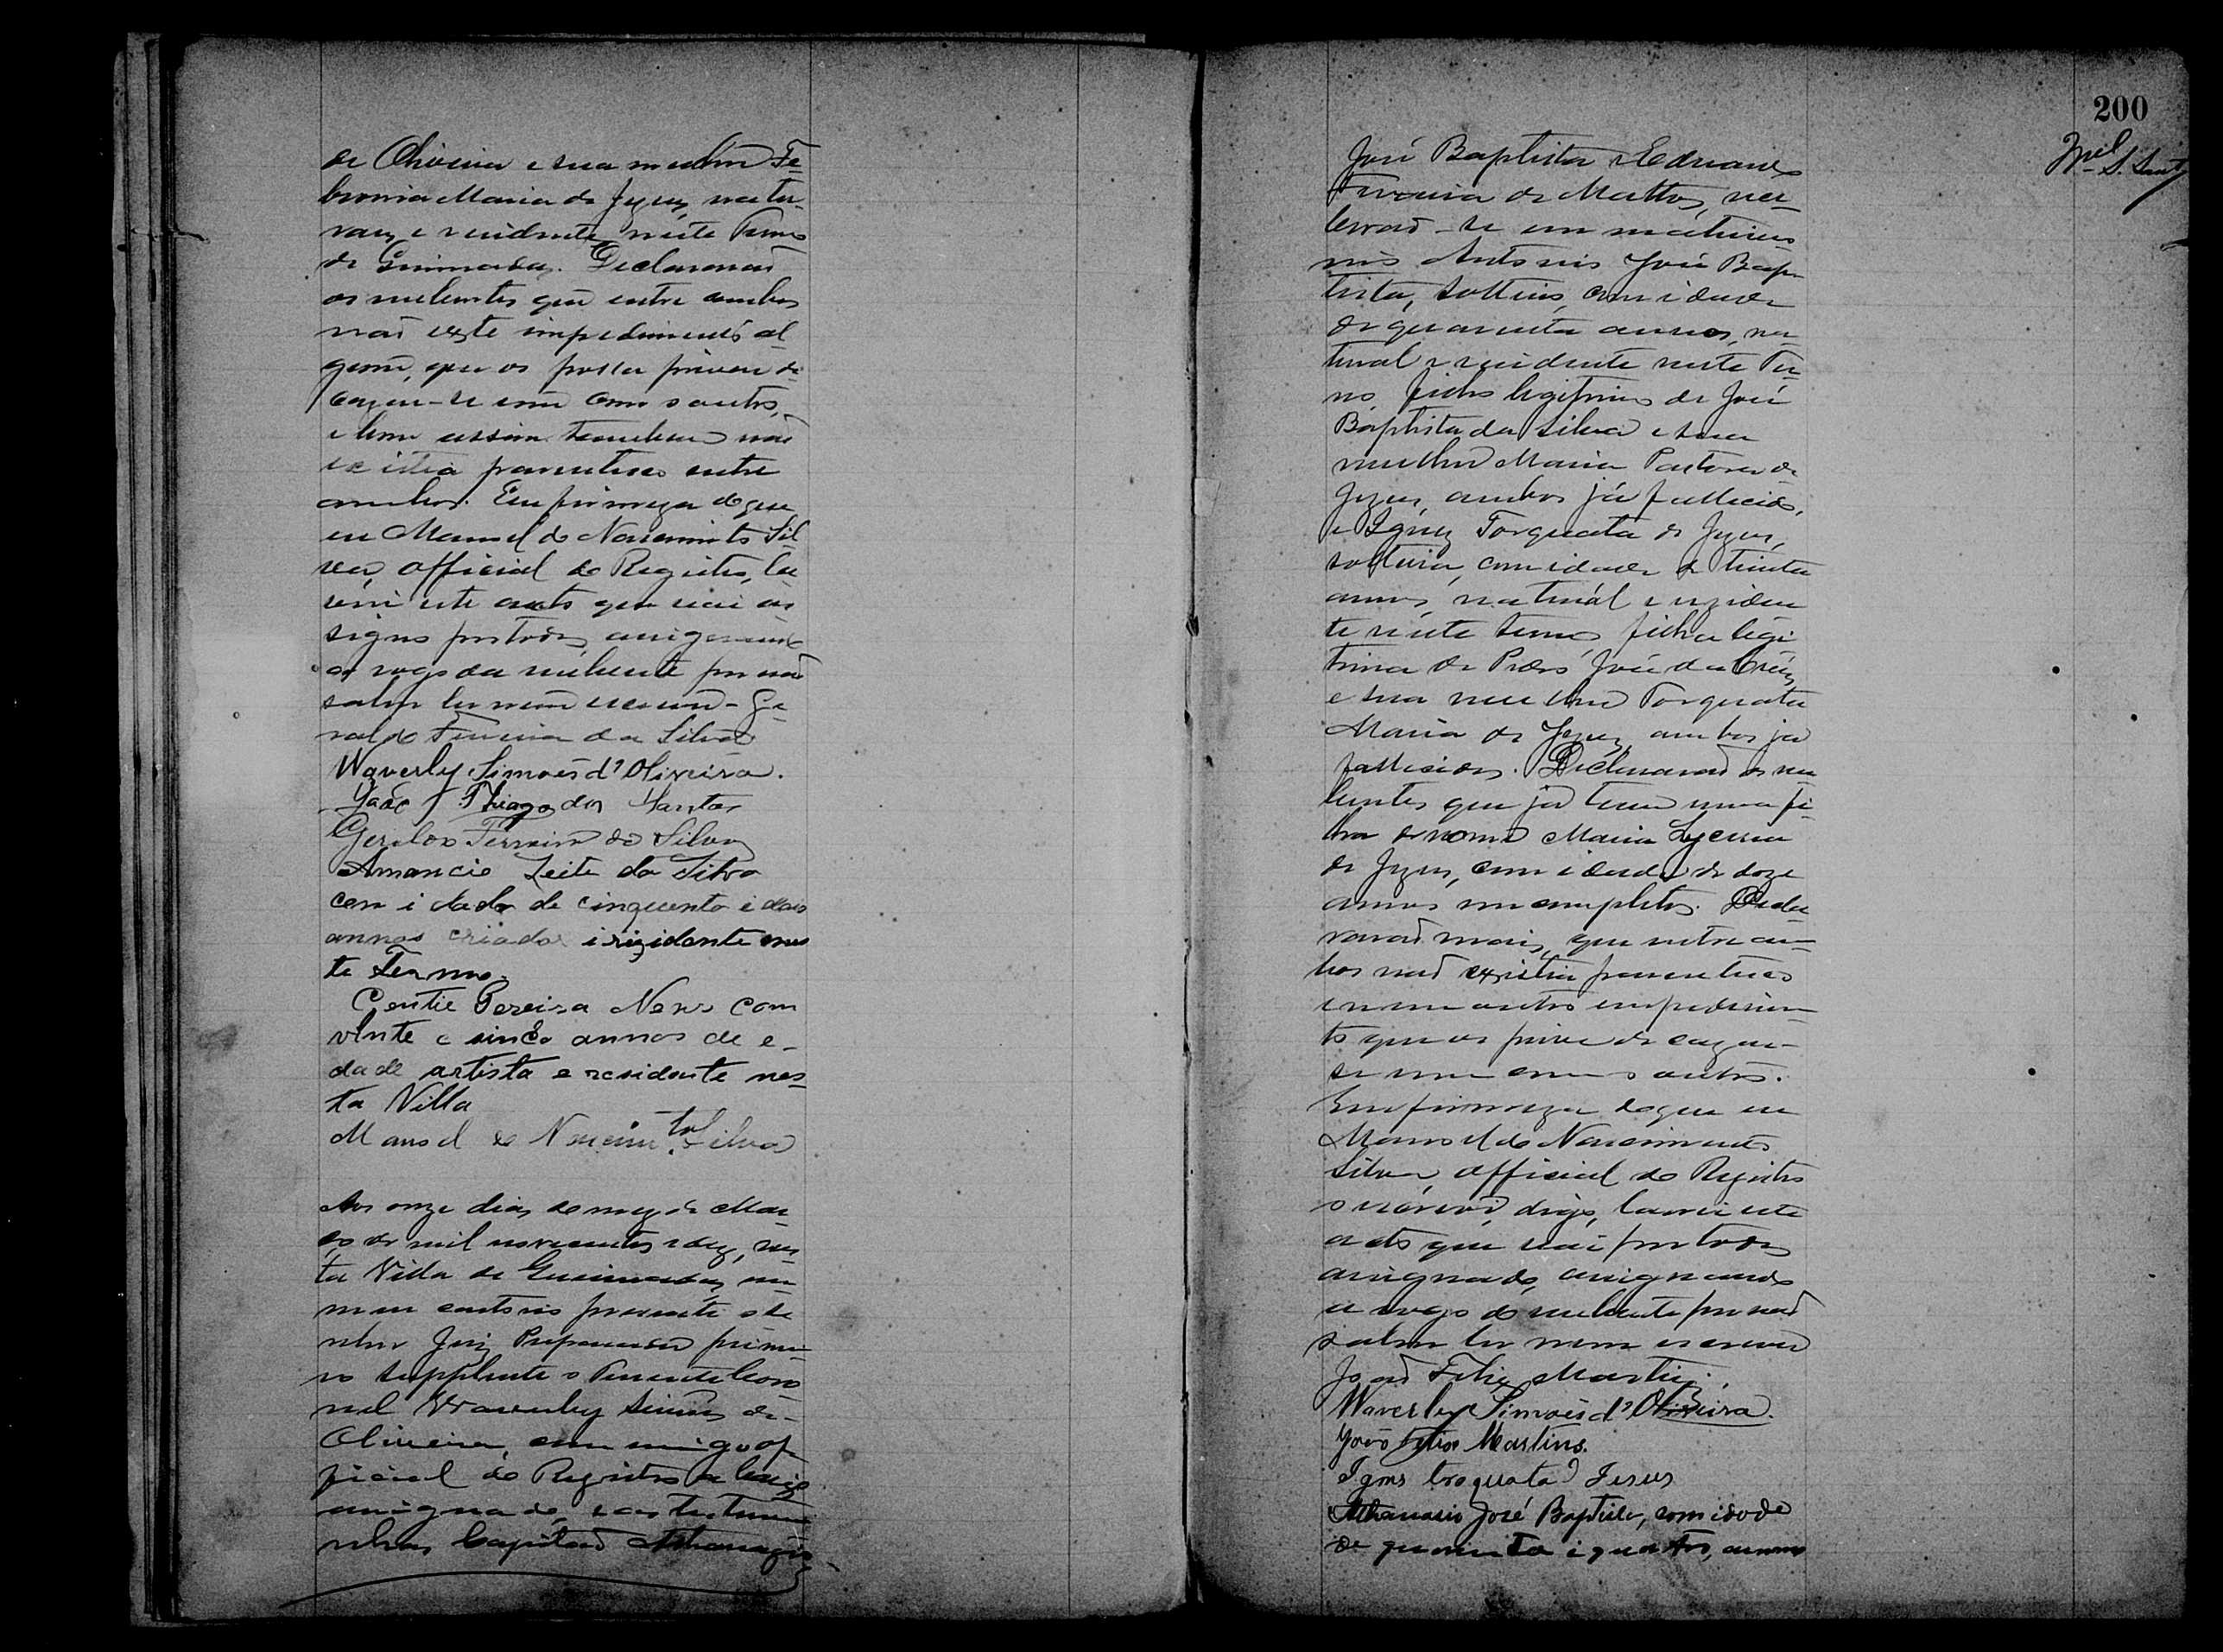 de Oliveira e sua mulher Fe-
bronia Maria de Jezus, natu-
raes e rezidente neste Termo
de Queimadas. Declararaõ
os nubentes que entre ambos
naõ existe impedimento al-
gum, que os possa privar de
cazar-se um com o outro,
e bem assim tambem naõ
existia parentesco entre
ambos. Em firmeza do que
eu Manoel do Nascimento Sil-
va, official do Registro, la-
vrei este auto que vai as-
signo por todos, assignando
a rogo da nubente por naõ
saber ler nem escrever - Ge-
raldo Ferreira da Silva
Waverly Simoẽs d'Oliveira.
Joaõ Thiago dos Santos
Geraldo Ferreira da Silva
Amancio Leite da Silva
com idade de cinquenta e dois
annos criador i rizidente nes
te Termo.
Pereira Neves com
vinte e sinco annos de e-
dade artista e residente nes-
ta Villa
Manoel do Nascimto Silva
Aos onze dias do mez de Mar-
ço de mil novecentos e dez, nes
ta Villa de Queimadas, em
meu cartorio prezente o Se
nhor Juiz Preparador primei-
ro supplente o Tenente Coro
nel Waverley Simoẽs de
Oliveira, com migo of
ficial do Registro a baixo
assignado, e as testemu
nhas Capitaõ Athanazio
200
José Baptista e Eduardo
Ferreira de Mattos, rec-
beraõ-se em matrimo
nio Antonio José Bap
tista, solteiro, com idade
de quarenta annos, na-
tural e rezidente neste Ter
mo, filho legitimo de José
Baptista da Silva e sua
mulher Maria Pastora de
Jezus, ambos já fallecidos,
e Ignez Torquata de Jezus,
solteira, com idade de trinta
annos, natural e reziden
te neste termo, filha legi
tima de Pedro José da Cruz
e sua mulher Torquata
Maria de Jezus, ambos ja
fallecidos. Declararaõ os nu
bentes que já tem uma fi
lha de nome Maria
de Jezus, com idade de doze
annos incompletos. Decla-
raraõ mais, que entre am
bos naõ existia parentesco
e nem outro impedimen
to que os prive de cazar-
se um com o outro.
Em firmeza do que eu
Manoel do Nascimento
Silva, official do Registro
o escrevi, digo, lavrei este
acto que vai por todos
assignado, assignando
a rogo do nubente por naõ
saber ler nem escrever
Joaõ Felix Martins.
Waverley Simoẽs d'Oliveira.
João Felix Martins.
Ignes troquata d Jesus
Athanasio José Baptista, com idade
de quarenta i quatro, annos